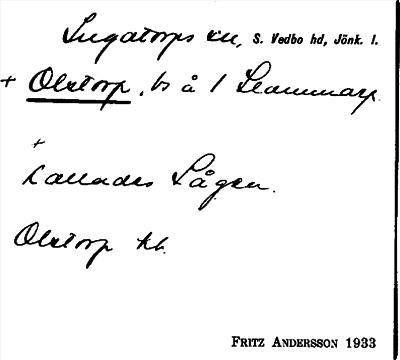 Lugatorps sn, S. Vedbo hd, Jönk. l.
+ Olstorp, bs å 1 Stammarp.
+
kallades Lågen.
Olstorp kb.
FRITZ ANDERSSON 1933